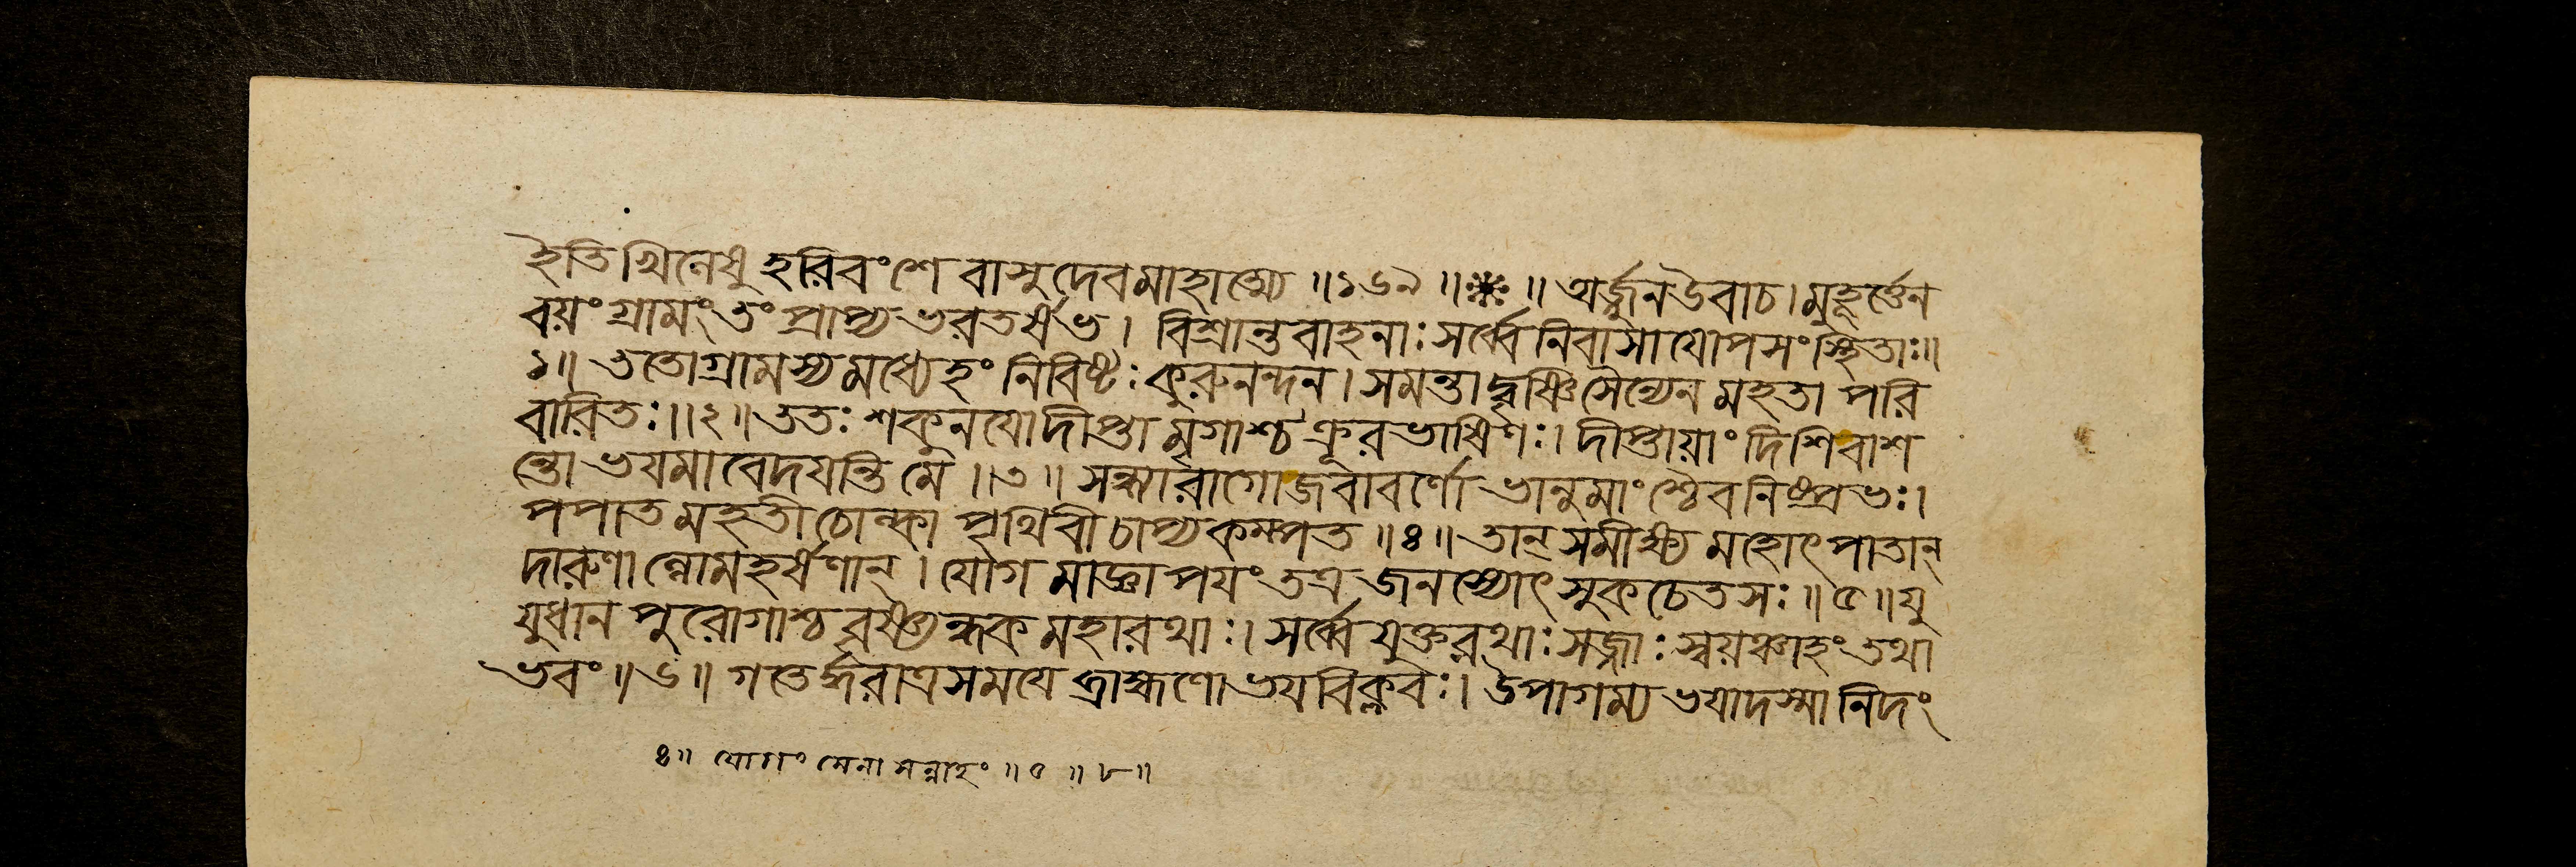 ইতি খিলেষু হরিবংশে বাসুদেবমাহাত্ম্যে ॥১৬৯ ॥❈॥ অর্জ্জুনউবাচ। মুহূর্ত্তেন
বয়ং গ্রামং তং প্রাপ্য ভরতর্ষভ। বিশ্রান্তবাহনাঃ সর্ব্বে নিবাসাযোপসংস্থিতাঃ॥
১॥ ততো গ্রামস্য মধ্যেহং নিবিষ্টঃ কুরুনন্দন। সমন্তাদ্বৃষ্ণিসৈন্যেন মহতা পরি
বারিতঃ॥২॥ ততঃ শকুনযো দীপ্তা মৃগাশ্চ ক্রূরভাষিণঃ। দীপ্তায়াং দিশি বাশ
ন্তো ভযমাবেদযন্তি মে ॥৩॥ সন্ধ্যারাগো জবাবর্ণো ভানুমাংশ্চৈব নিষ্প্রভঃ।
পপাত মহতী চোল্কা পৃথিবী চাপ্যকম্পত ॥৪॥ তান্ সমীক্ষ্য মহোৎপাতান্
দারুণাল্লোমহর্ষণান্। যোগমাজ্ঞাপযং তত্র জনস্যোৎসুকচেতসঃ ॥৫॥ যু
যুধানপুরোগাশ্চ বৃষ্ণ্যন্ধকমহারথাঃ। সর্ব্বে যুক্তরথাঃ সজ্জাঃ স্বয়ঞ্চাহং তথা
ভবং ॥৬॥ গতের্দ্ধরাত্রসময়ে ব্রাহ্মণো ভযবিক্লবঃ। উপাগম্য ভযাদস্মানিদং
৪॥ যোগং সেনাসন্নাহং ॥৫॥৮॥